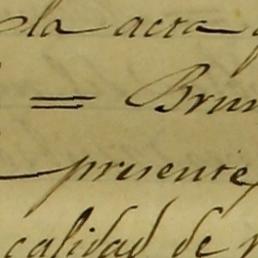 la acta
= Brun
presente,
calidad de